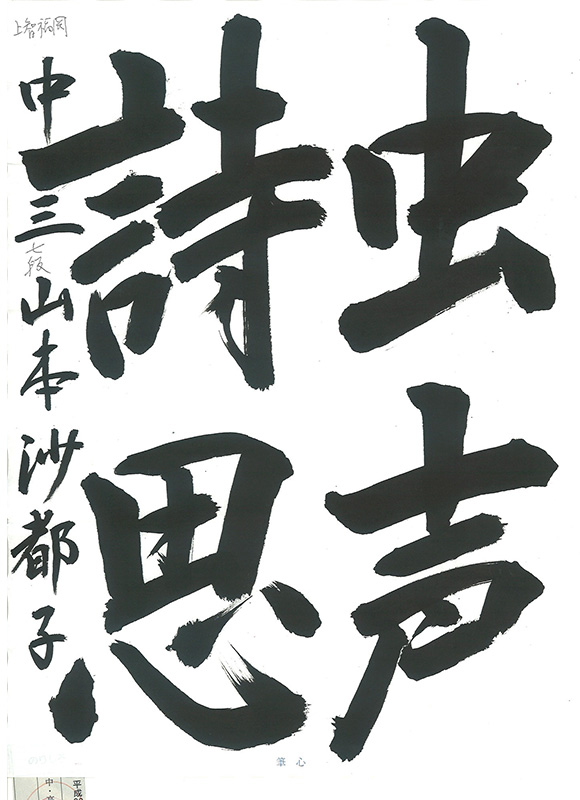 虫声
詩思
中三山本沙都子
七段
上智福岡
心筆
平成
中・